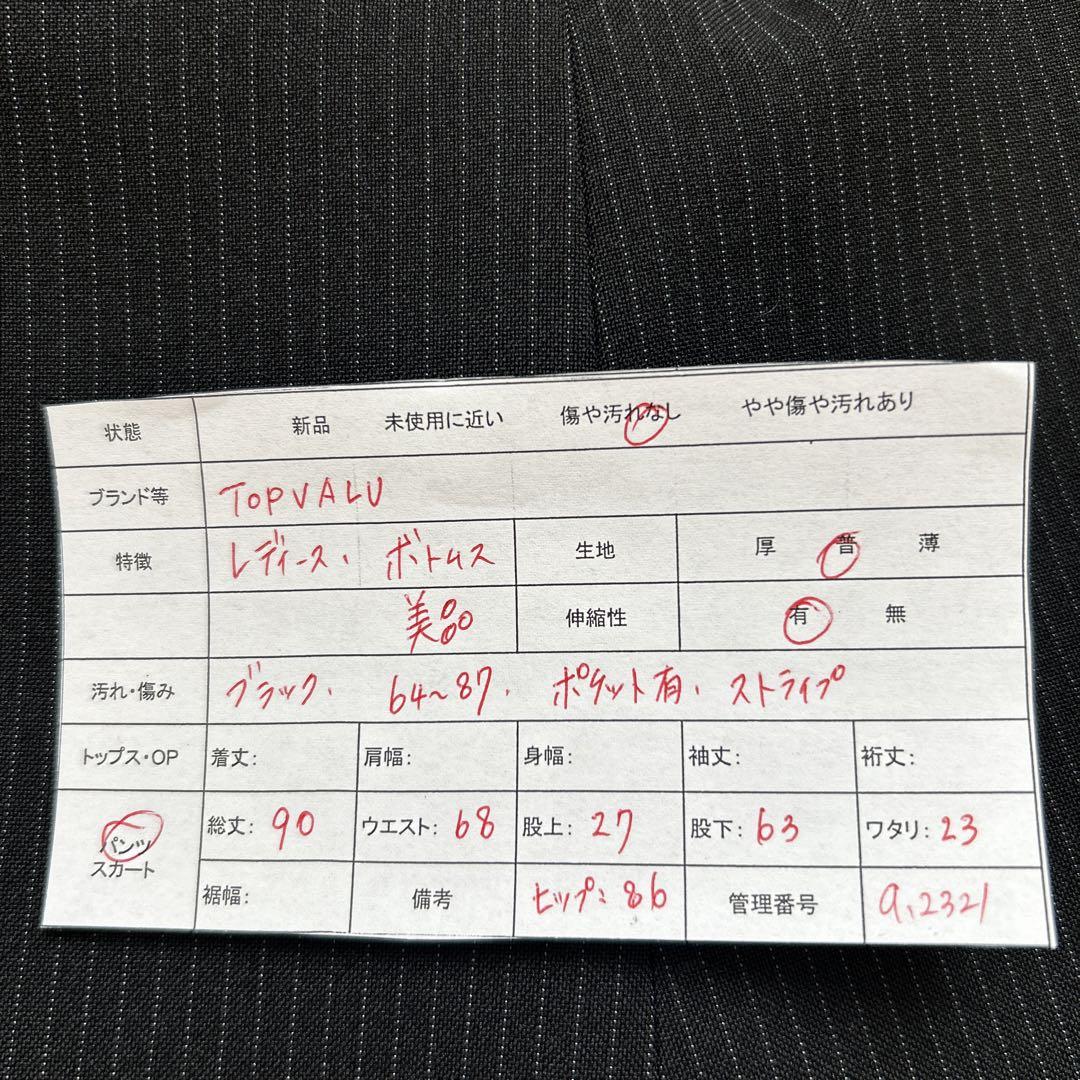 状態 新品 未使用に近い 傷や汚れなし やや傷や汚れあり
ブランド等 TOPVALU
特徴 レディース、 ボトムス 生地 厚 普 薄
美品 伸縮性 有 無
汚れ・傷み ブラック、 64~87、 ポケット有、 ストライプ
トップス・OP 着丈: 肩幅: 身幅: 袖丈: 裄丈:
パンツ 総丈: 90 ウエスト: 68 股上: 27 股下: 63 ワタリ: 23
スカート
裾幅: 備考 ヒップ: 86 管理番号 a,2321